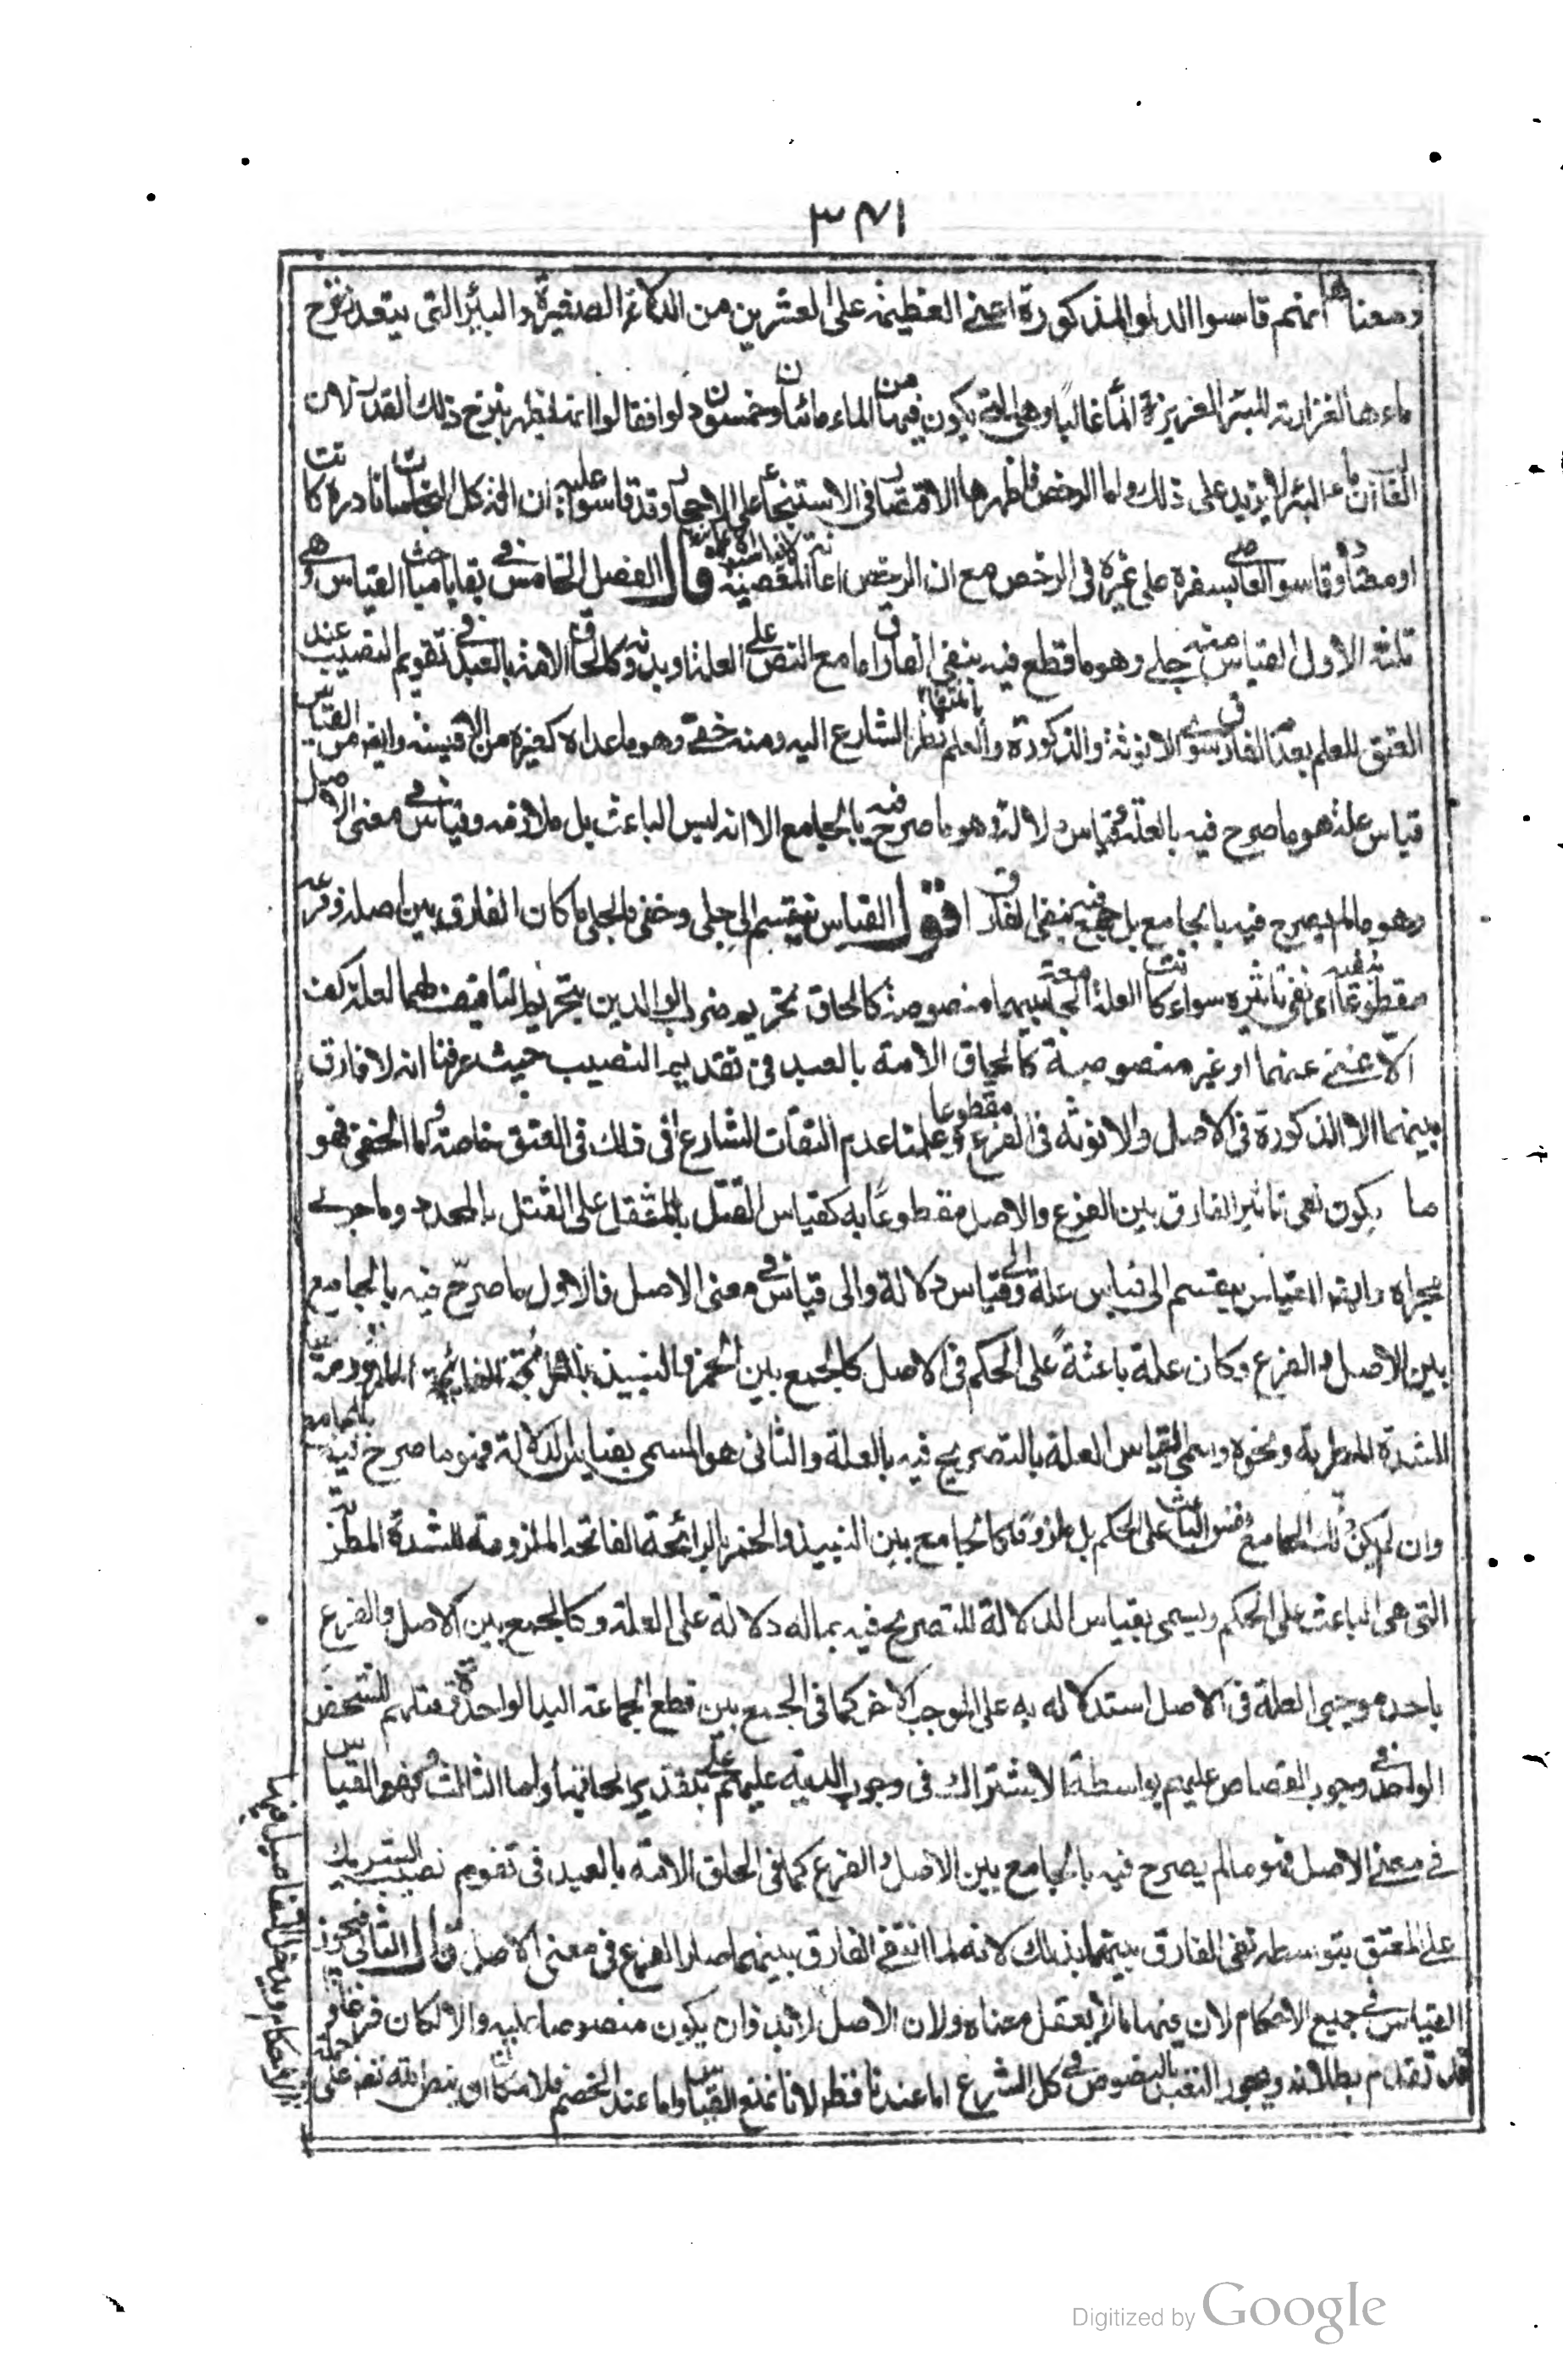 ٣٧١
ومعناها انهم قاسوا الدلو المذكورة اعنى العظيمة على العشرين من الدلاء الصغيرة والبئر التى يتعذر نزح
ماءها لغزارته البئر الغزيرة الماء غالبا وهى التى يكون فيها من الماء مائتان وخمسون دلوا فقالوا انها تطهر بنزح ذلك القدر لان
الغالب ان ماء البئر لا يزيد على ذلك واما الرخص فاظهرها الاقتصار فى الاستنجاء على الاحجار وقد قاسوا عليه ان افنه كل النجاسات نادرة كانت
او معتادة وقاسوا العاصى بسفره على غيره فى الرخص مع ان الرخص اعانة المعصية قال الفصل الخامس فى بقايا مباحث القياس وهى
ثلثة الاول القياس منه جلى وهو ما قطع فيه بنفى الفارق اما مع النص على العلة او بدونه وكالحاق الامة بالعبد فى تقويم النصيب عند
العتق للعلم بعدم الفارق سوى الانوثة والذكورة والعلم بالتفات نظر الشارع اليه ومنه خفى وهو ما عداه كغيره من الاقيسة وايضا من القياس
قياس علة هو ما صرح فيه بالعلة وقياس دلالة وهو ما صرح فيه بالجامع الا انه ليس الباعث بل ملازمه وقياس فى معنى الاصل
وهو ما لم يصرح فيه بالجامع بل جمع فيه بنفى الفارق اقول القياس ينقسم الى جلى وخفى فالجلى ما كان الفارق بين اصله وفرعه
مقطوعا بنفيه اى نفى تاثيره سواء كانت العلة الجامعة بينهما منصوصة كالحاق تحريم ضرب الوالدين بتحريم التافيف لهما لعلة كف
الاذى عنهما او غير منصوصة كالحاق الامة بالعبد فى تقديم النصيب حيث عرفنا انه لا فارق
بينهما الا الذكورة فى الاصل والانوثة فى الفرع وعلمنا مقطوعا عدم التفات الشارع الى ذلك فى العتق خاصة واما الخفى فهو
ما يكون نفى تاثير الفارق بين الفرع والاصل مقطوعا به كقياس القتل بالمثقل على القتل بالمحدد وما جرى
مجراه وايضا القياس ينقسم الى قياس علة والى قياس دلالة والى قياس فى معنى الاصل فالاول ما صرح فيه بالجامع
بين الاصل والفرع وكان علة باعثة على الحكم فى الاصل كالجمع بين الخمر والنبيذ بالرائحة الفائحة الملزومة
للشدة المطربة ونحوه وسمى قياس العلة بالتصريح فيه بالعلة والثانى هو المسمى بقياس الدلالة فهو ما صرح فيه بالجامع
وان لم يكن ذلك الجامع هو الباعث على الحكم بل ملزوما كالجامع بين النبيذ والخمر بالرائحة الفائحة الملزومة للشدة المطربة
التى هى الباعث على الحكم ويسمى بقياس الدلالة للتصريح فيه بما له دلالة على العلة وكالجمع بين الاصل والفرع
باحد موجبى العلة فى الاصل استدلالا به على الموجب الاخر كما فى الجمع بين قطع الجماعة اليد الواحدة وقتلهم للشخص
الواحد فى وجوب القصاص عليهم بواسطة الاشتراك فى وجوب الدية عليهم على تقدير ايجابها واما الثالث فهو القياس
فى معنى الاصل فهو ما لم يصرح فيه بالجامع بين الاصل والفرع كما فى الحاق الامة بالعبد فى تقويم نصيب الشريك
على المعتق بتوسط نفى الفارق بينهما بذلك لانه لما انتفى الفارق بينهما صار الفرع فى معنى الاصل قال الثانى فى جواز
القياس فى جميع الاحكام لان فيها ما لا يعقل معناه ولان الاصل لا بد وان يكون منصوصا عليه والا لكان فرعا
قد تقدم بطلانه ويجوز التعبد بالنصوص فى كل الشرع اما عندنا فظاهر لانا نمنع القياس واما عند الخصم فلامكان ان ينص الله تعالى على